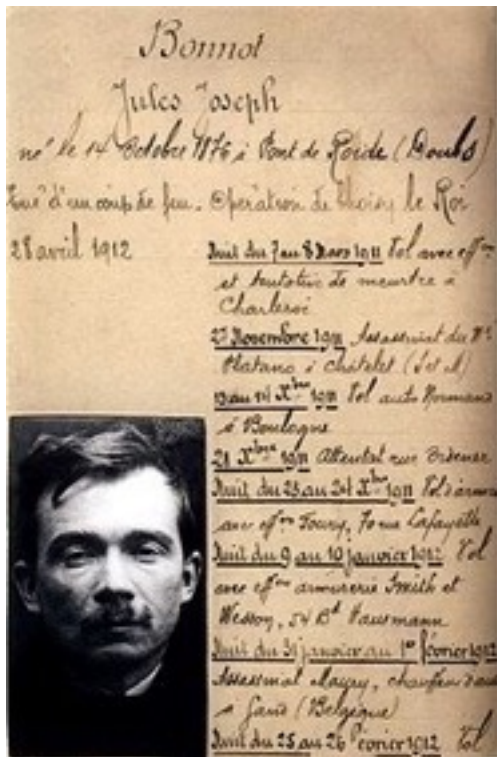 Bonnot
Jules Joseph
né le 14 Octobre 1876 à Pont de Roide (Doubs)
Tué d'un coup de feu. Opération de Choisy le Roi
28 avril 1912
Nuit du 7 au 8 Mars 1911 Vol avec eff^on
et tentative de meurtre à
Charleroi
27 Novembre 1911 Assassinat du N^é
Platano à Châtelet (S et M)
13 au 14 X^bre 1911 Vol auto Normand
à Boulogne
21 X^bre 1911 Attentat rue Ordener
Nuit du 23 au 24 X^bre 1911 Vol d'armes
avec eff^on Foury, 70 rue Lafayette
Nuit du 9 au 10 janvier 1912 Vol
avec eff^on armurerie Smith et
Wesson, 54 B^d Hausmann
Nuit du 31 janvier au 1^er février 1912
Assassinat Maury, chauffeur
à Gand (Belgique)
Nuit du 25 au 26 février 1912 Vol